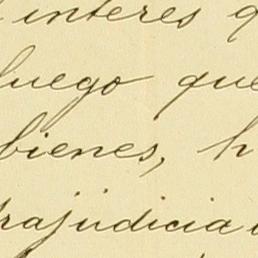 interes q
luego que
bienes, h
rajudicia